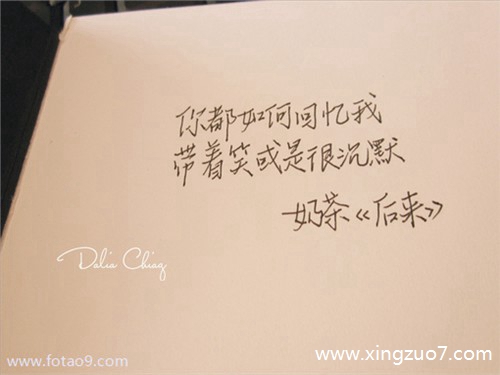 你都如何回忆我
带着笑或是很沉默
奶茶《后来》
Dalia Chiag
www.fotao9.com
www.xingzuo7.com